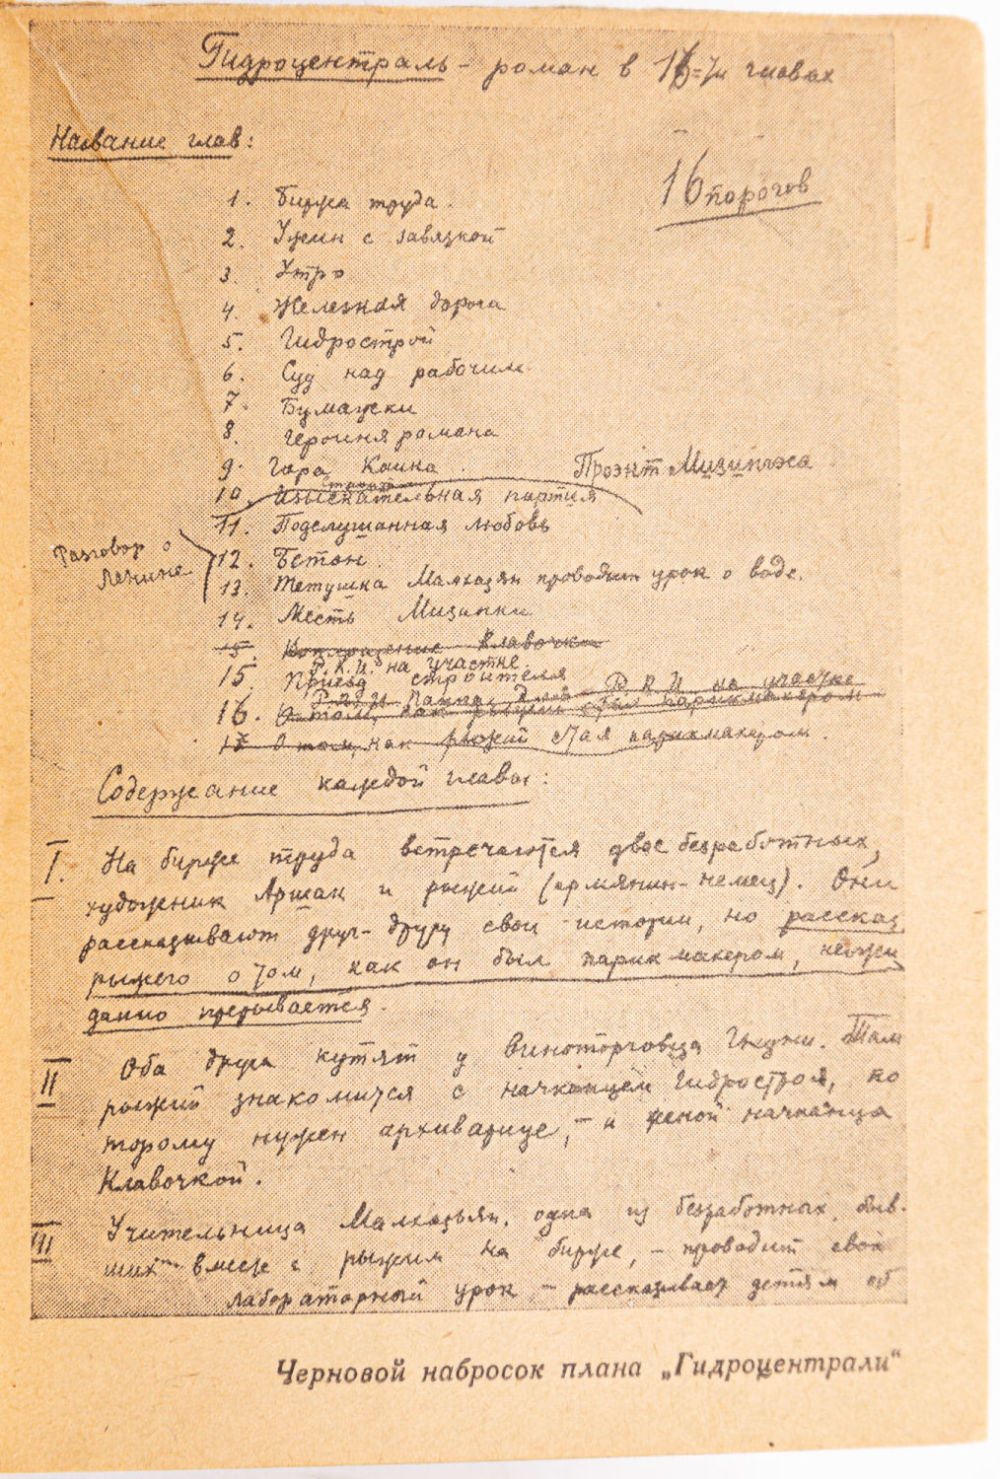 Гидроцентраль – роман в 16 = 7и главах
Название глав:
16 порогов
1. Биржа труда.
2. Ужин с завязкой
3. Утро
4. Железная дорога
5. Гидрострой
6. Суд над рабочим
7. Бумажки
8. Героиня романа
9. Гора Каина.
Проэкт Мизингэса
10. Изыскательная партия
11. Подслушанная любовь
Разговор о Ленине
12. Бетон.
13. Тетушка Малхазян проводит урок о воде.
14. Месть Мизинки
15. Клавочки
Р.К.И. на участке
15. Приезд строителя
Р К И на участке
16. О том, как рыжий стал парикмахером
17 О том, как рыжий стал парикмахером.
Содержание каждой главы:
I. На бирже труда встречаются двое безработных,
художник Аршак и рыжий (армянин-немец). Они
рассказывают друг-другу свои истории, но рассказ
рыжего о том, как он был парикмахером, неожи
данно прерывается.
II Оба друга кутят у виноторговца Гнуни. Там
рыжий знакомится с начканцем Гидростроя, ко
торому нужен архивариус, – и женой начканца
Клавочкой.
III Учительница Малхазьян, одна из безработных, быв-
ших вместе с рыжим на бирже, – проводит свой
лабораторный урок – рассказывает детям об
Черновой набросок плана „Гидроцентрали“